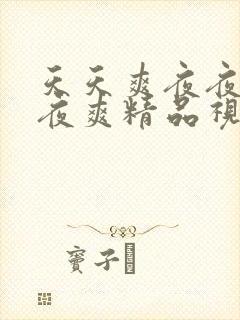 天天爽夜夜
夜爽精品視
寶子